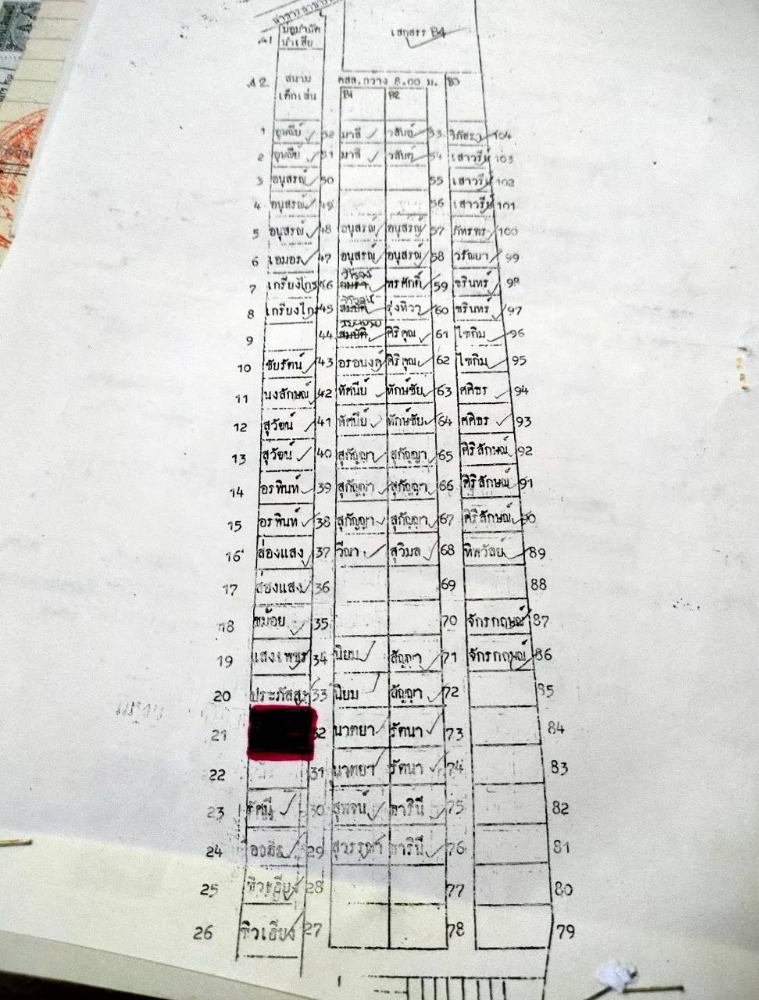 A1
เสกสรร B4
A2 สนาม คสล.กวาง 8.00 ม. B3
เด็กเล่น B1 B2
1 52 มาลี วสันต์ 53 104
2 51 มาลี วสันต์ 54 เสาวรีย์ 103
3 อนุสรณ์ 50 55 เสาวรีย์ 102
4 อนุสรณ์ 49 56 เสาวรีย์ 101
5 อนุสรณ์ 48 อนุสรณ์ อนุสรณ์ 57 ภัทรพร 100
6 เอมอร 47 อนุสรณ์ อนุสรณ์ 58 วรัญยา 99
7 เกรียงไกร 46 พรศักดิ์ 59 ชรินทร์ 98
8 เกรียงไกร 45 สมบัติ รุ่งทิวา 60 ชรินทร์ 97
9 44 สมบัติ ศิริคุณ 61 ไซกิม 96
10 ชัยรัตน์ 43 อรอนงค์ ศิริคุณ 62 ไซกิม 95
11 นงลักษณ์ 42 ทัศนีย์ ทักษ์ชัย 63 ศศิธร 94
12 สุวัจน์ 41 ทัศนีย์ ทักษ์ชัย 64 ศศิธร 93
13 สุวัจน์ 40 สุกัญญา สุกัญญา 65 ศิริลักษณ์ 92
14 อรพินท์ 39 สุกัญญา สุกัญญา 66 ศิริลักษณ์ 91
15 อรพินท์ 38 สุกัญญา สุกัญญา 67 ศิริลักษณ์ 90
16 ส่องแสง 37 วีณา สุวิมล 68 ทิพวัลย์ 89
17 ส่องแสง 36 69 88
18 ชม้อย 35 70 จักรกฤษณ์ 87
19 แสงเพชร 34 นิยม สัญญา 71 จักรกฤษณ์ 86
20 ประภัสสร 33 นิยม สัญญา 72 85
21 32 นาตยา รัตนา 73 84
22 31 นาตยา รัตนา 74 83
23 รัศมี 30 สุพจน์ ชารินี 75 82
24 29 สุวรรณา ชารินี 76 81
25 ซิวเฮียง 28 77 80
26 ซิวเฮียง 27 78 79